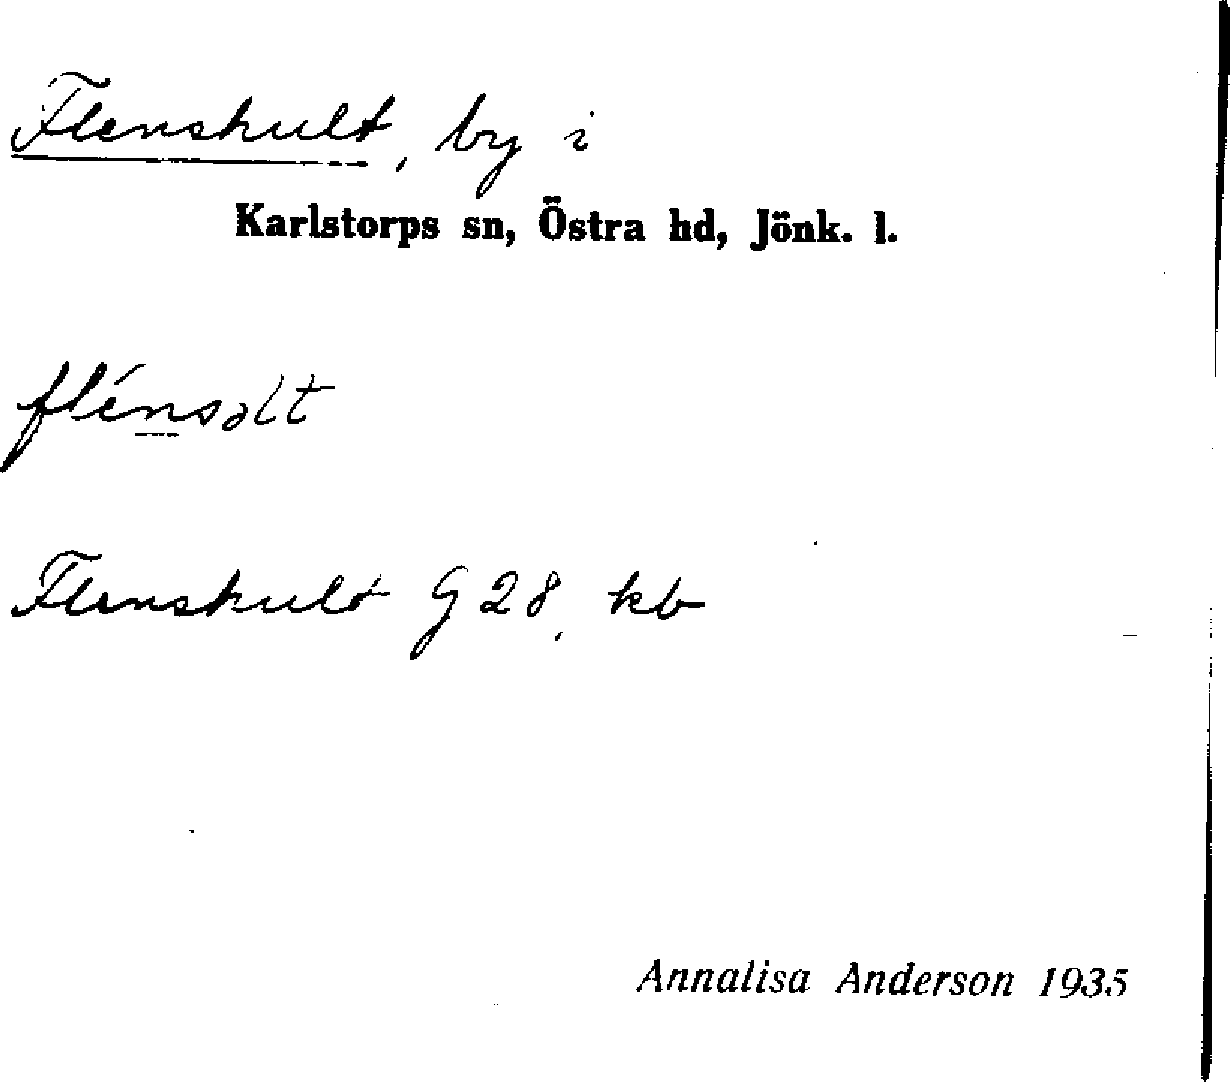 Flenskult, by i
Karlstorps sn, Östra hd, Jönk. l.
flénsəlt
Flenskult G 28, kb
Annalisa Anderson 1935